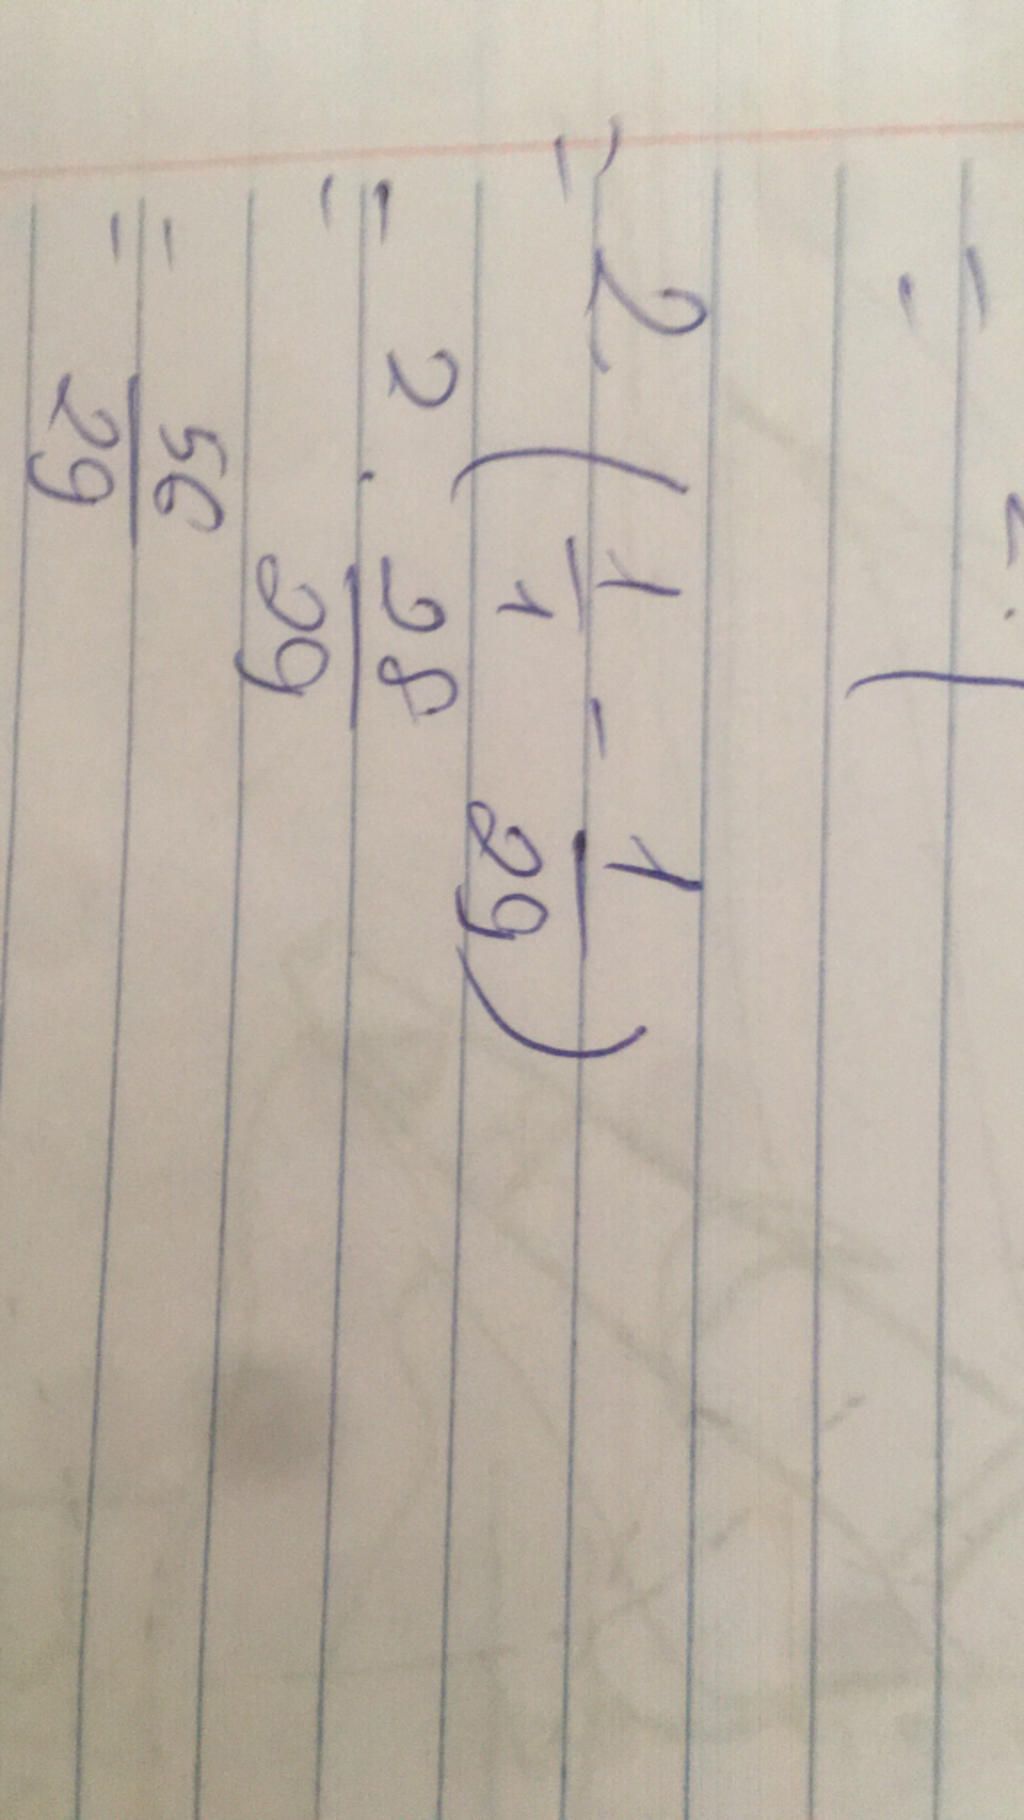 = 2 . (
= 2 ( 1/1 - 1/29 )
= 2 . 28/29
= 56/29